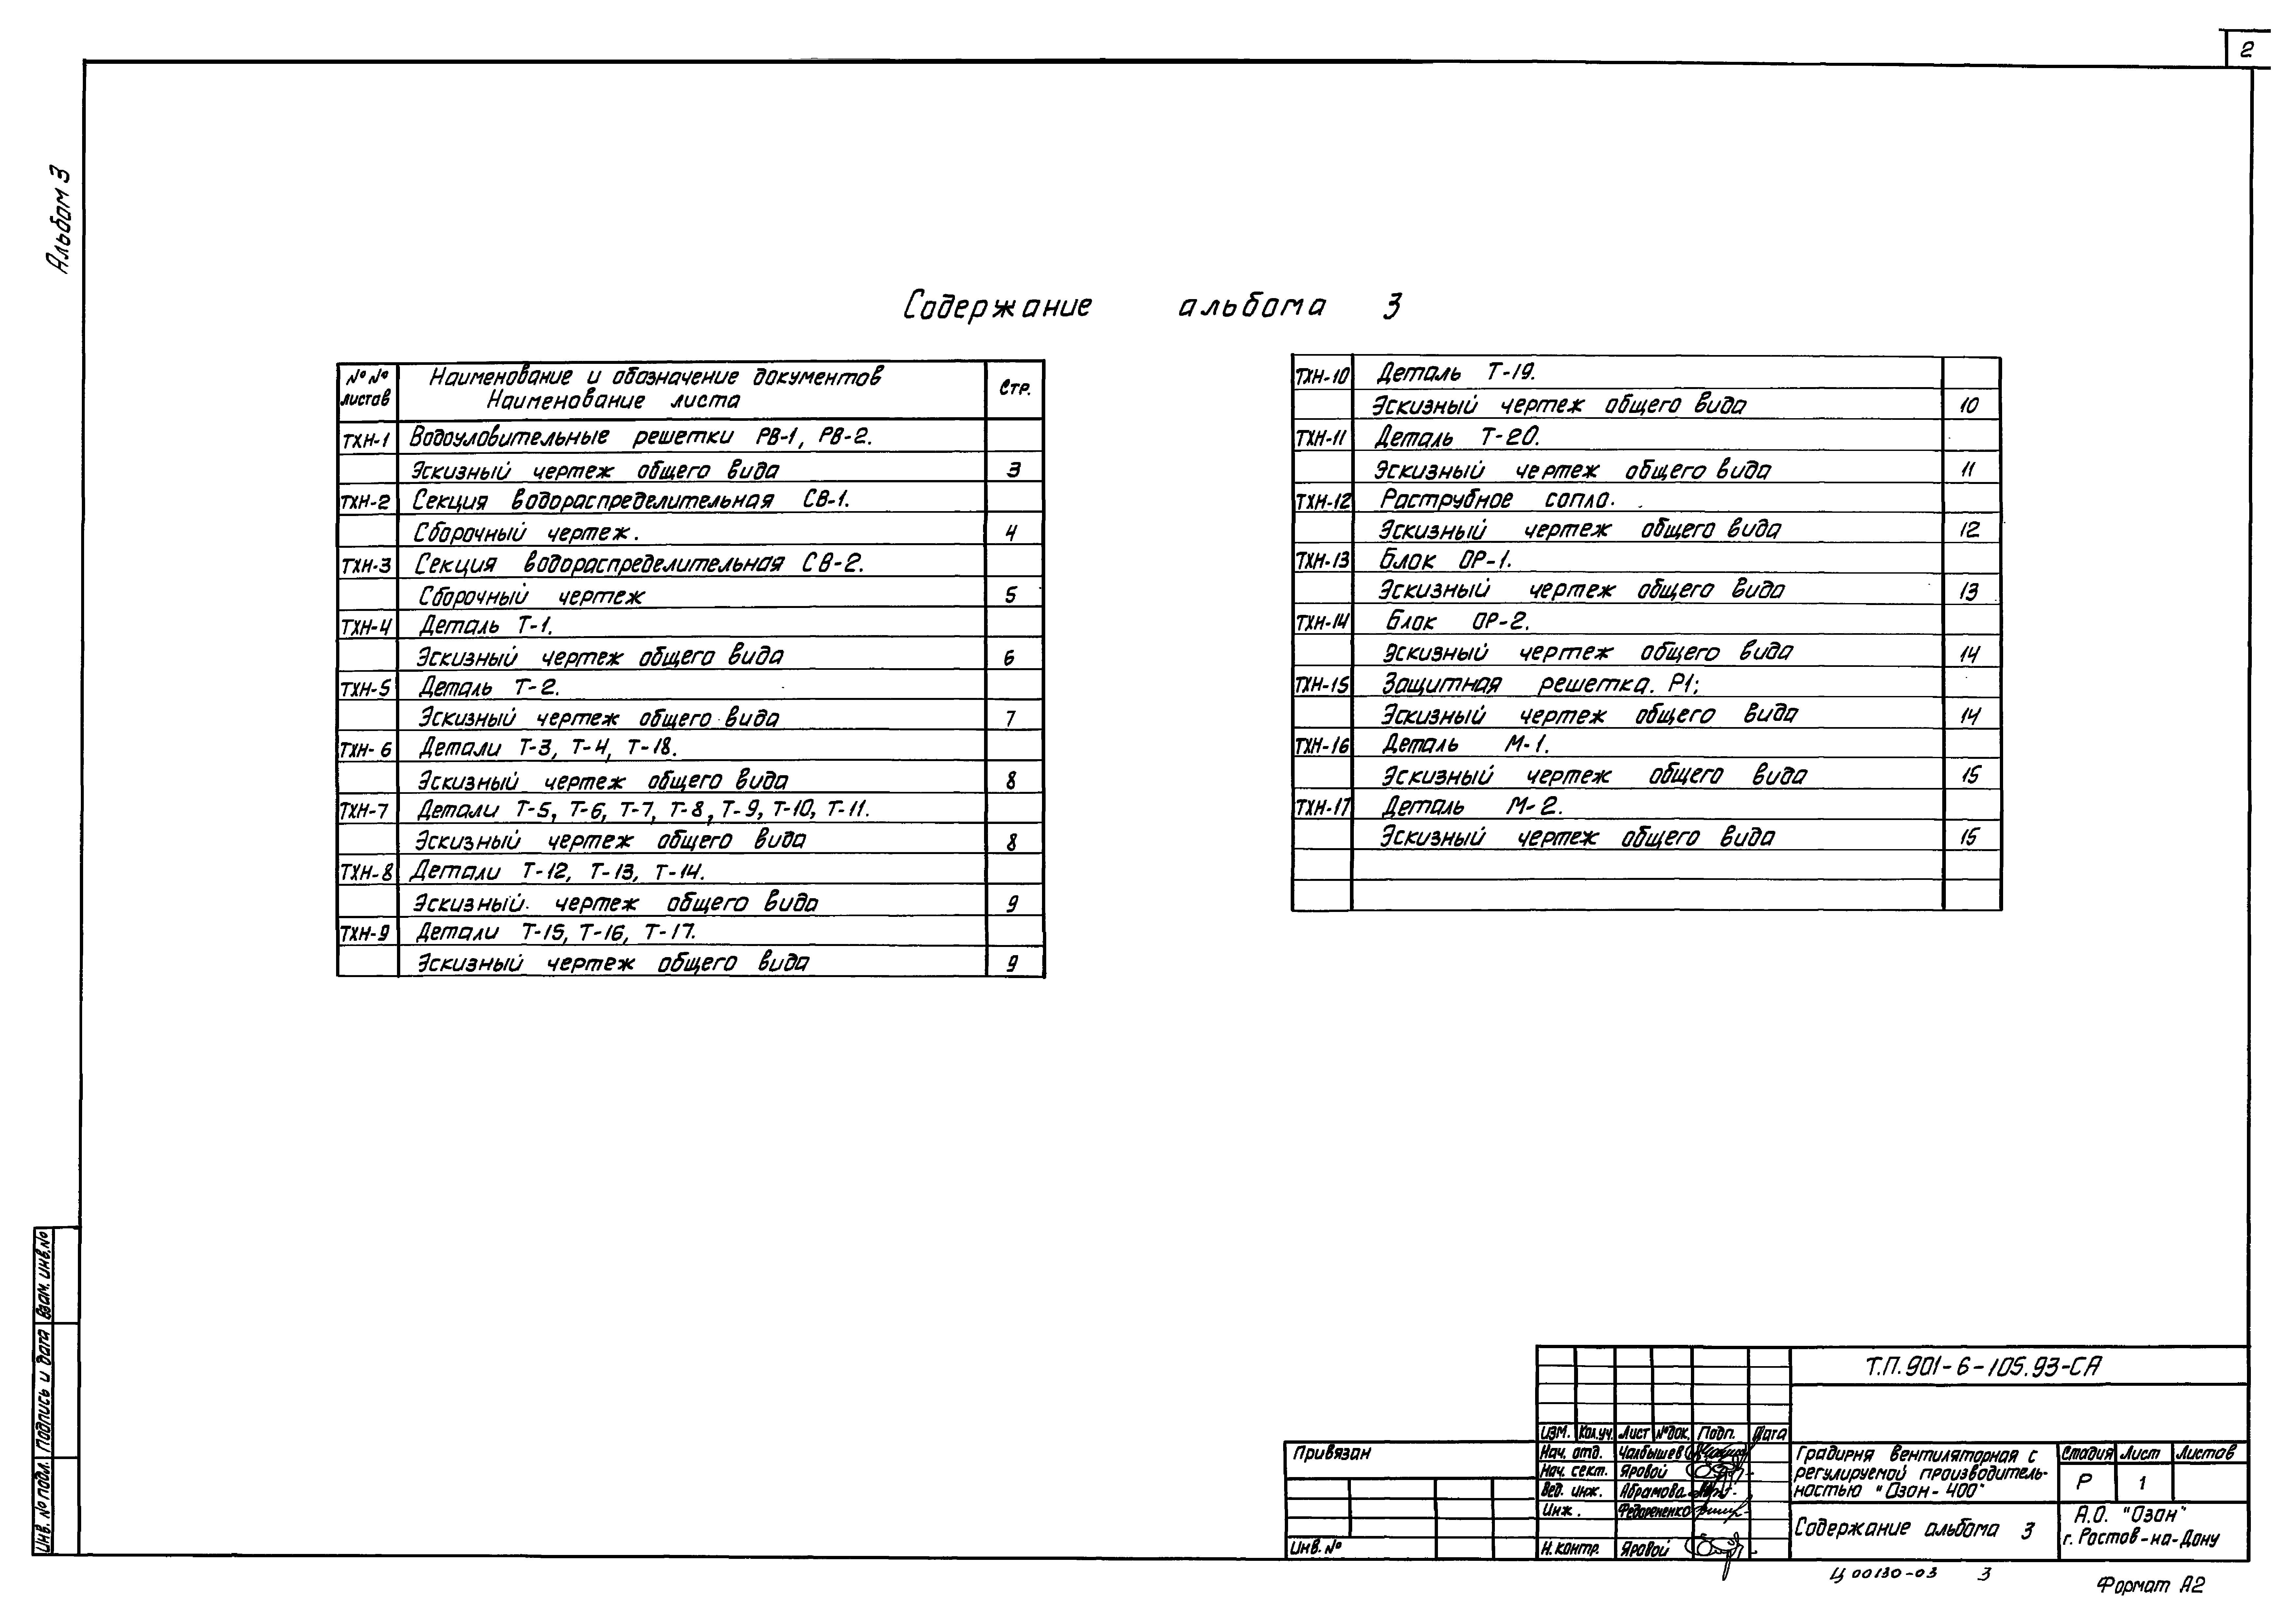 2
Альбом 3
Содержание альбома 3
№ №
листов
Наименование и обозначение документов
Наименование листа
Стр.
ТХН-1 Водоуловительные решетки РВ-1, РВ-2.
Эскизный чертеж общего вида 3
ТХН-2 Секция водораспределительная СВ-1.
Сборочный чертеж. 4
ТХН-3 Секция водораспределительная СВ-2.
Сборочный чертеж 5
ТХН-4 Деталь Т-1.
Эскизный чертеж общего вида 6
ТХН-5 Деталь Т-2.
Эскизный чертеж общего вида 7
ТХН-6 Детали Т-3, Т-4, Т-18.
Эскизный чертеж общего вида 8
ТХН-7 Детали Т-5, Т-6, Т-7, Т-8, Т-9, Т-10, Т-11.
Эскизный чертеж общего вида 8
ТХН-8 Детали Т-12, Т-13, Т-14.
Эскизный чертеж общего вида 9
ТХН-9 Детали Т-15, Т-16, Т-17.
Эскизный чертеж общего вида 9
ТХН-10 Деталь Т-19.
Эскизный чертеж общего вида 10
ТХН-11 Деталь Т-20.
Эскизный чертеж общего вида 11
ТХН-12 Раструбное сопло.
Эскизный чертеж общего вида 12
ТХН-13 Блок ОР-1.
Эскизный чертеж общего вида 13
ТХН-14 Блок ОР-2.
Эскизный чертеж общего вида 14
ТХН-15 Защитная решетка. Р1;
Эскизный чертеж общего вида 14
ТХН-16 Деталь М-1.
Эскизный чертеж общего вида 15
ТХН-17 Деталь М-2.
Эскизный чертеж общего вида 15
Взам. инв. №
Подпись и дата
Инв. № подл.
Привязан
Инв. №
Изм. Кол.уч. Лист № док. Подп. Дата
Нач. отд. Чалбышев
Нач. сект. Яровой
Вед. инж. Абрамова
Инж. Федорененко
Н. контр. Яровой
Т.П. 901-6-105.93-СА
Градирня вентиляторная с
регулируемой производитель-
ностью "Озон-400"
Стадия Лист Листов
Р 1
Содержание альбома 3
А.О. "Озон"
г. Ростов-на-Дону
Ц 00130-03 3
Формат А2